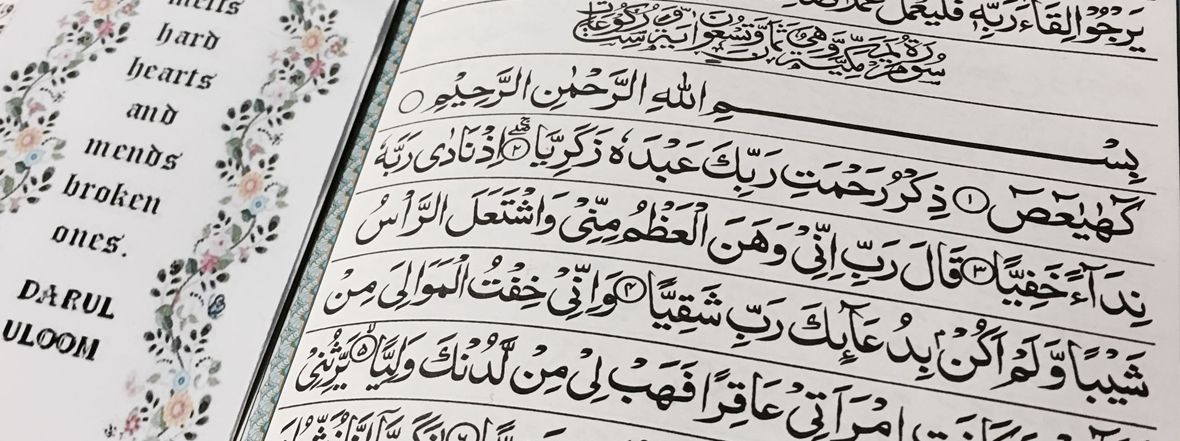 melts
hard
hearts
and
mends
broken
ones.
DARUL
ULOOM
يَرْجُوْا لِقَآءَ رَبِّهٖ فَلْيَعْمَلْ عَمَلًا
سُوْرَةُ مَرْيَمَ مَكِّيَّةٌ وَّهِيَ ثَمَانٌ وَّتِسْعُوْنَ اٰيَةً
بِسْمِ اللّٰهِ الرَّحْمٰنِ الرَّحِيْمِ
كٓهٰيٰعٓصٓ ۝١ ذِكْرُ رَحْمَتِ رَبِّكَ عَبْدَهٗ زَكَرِيَّا ۝٢ اِذْ نَادٰى رَبَّهٗ
نِدَآءً خَفِيًّا ۝٣ قَالَ رَبِّ اِنِّيْ وَهَنَ الْعَظْمُ مِنِّيْ وَاشْتَعَلَ الرَّاْسُ
شَيْبًا وَّلَمْ اَكُنْۢ بِدُعَآئِكَ رَبِّ شَقِيًّا ۝٤ وَاِنِّيْ خِفْتُ الْمَوَالِيَ مِنْ
امْرَاَتِيْ عَاقِرًا فَهَبْ لِيْ مِنْ لَّدُنْكَ وَلِيًّا ۝٥ يَّرِثُنِيْ